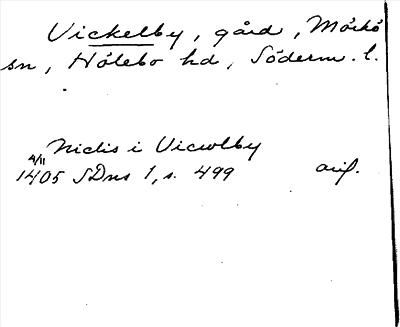 Vickelby, gård, Mörkö
sn, Hölebo hd, Söderm. l.
Niclis i Vicwlby
4/11
1405 SDns 1, s. 499 avs.